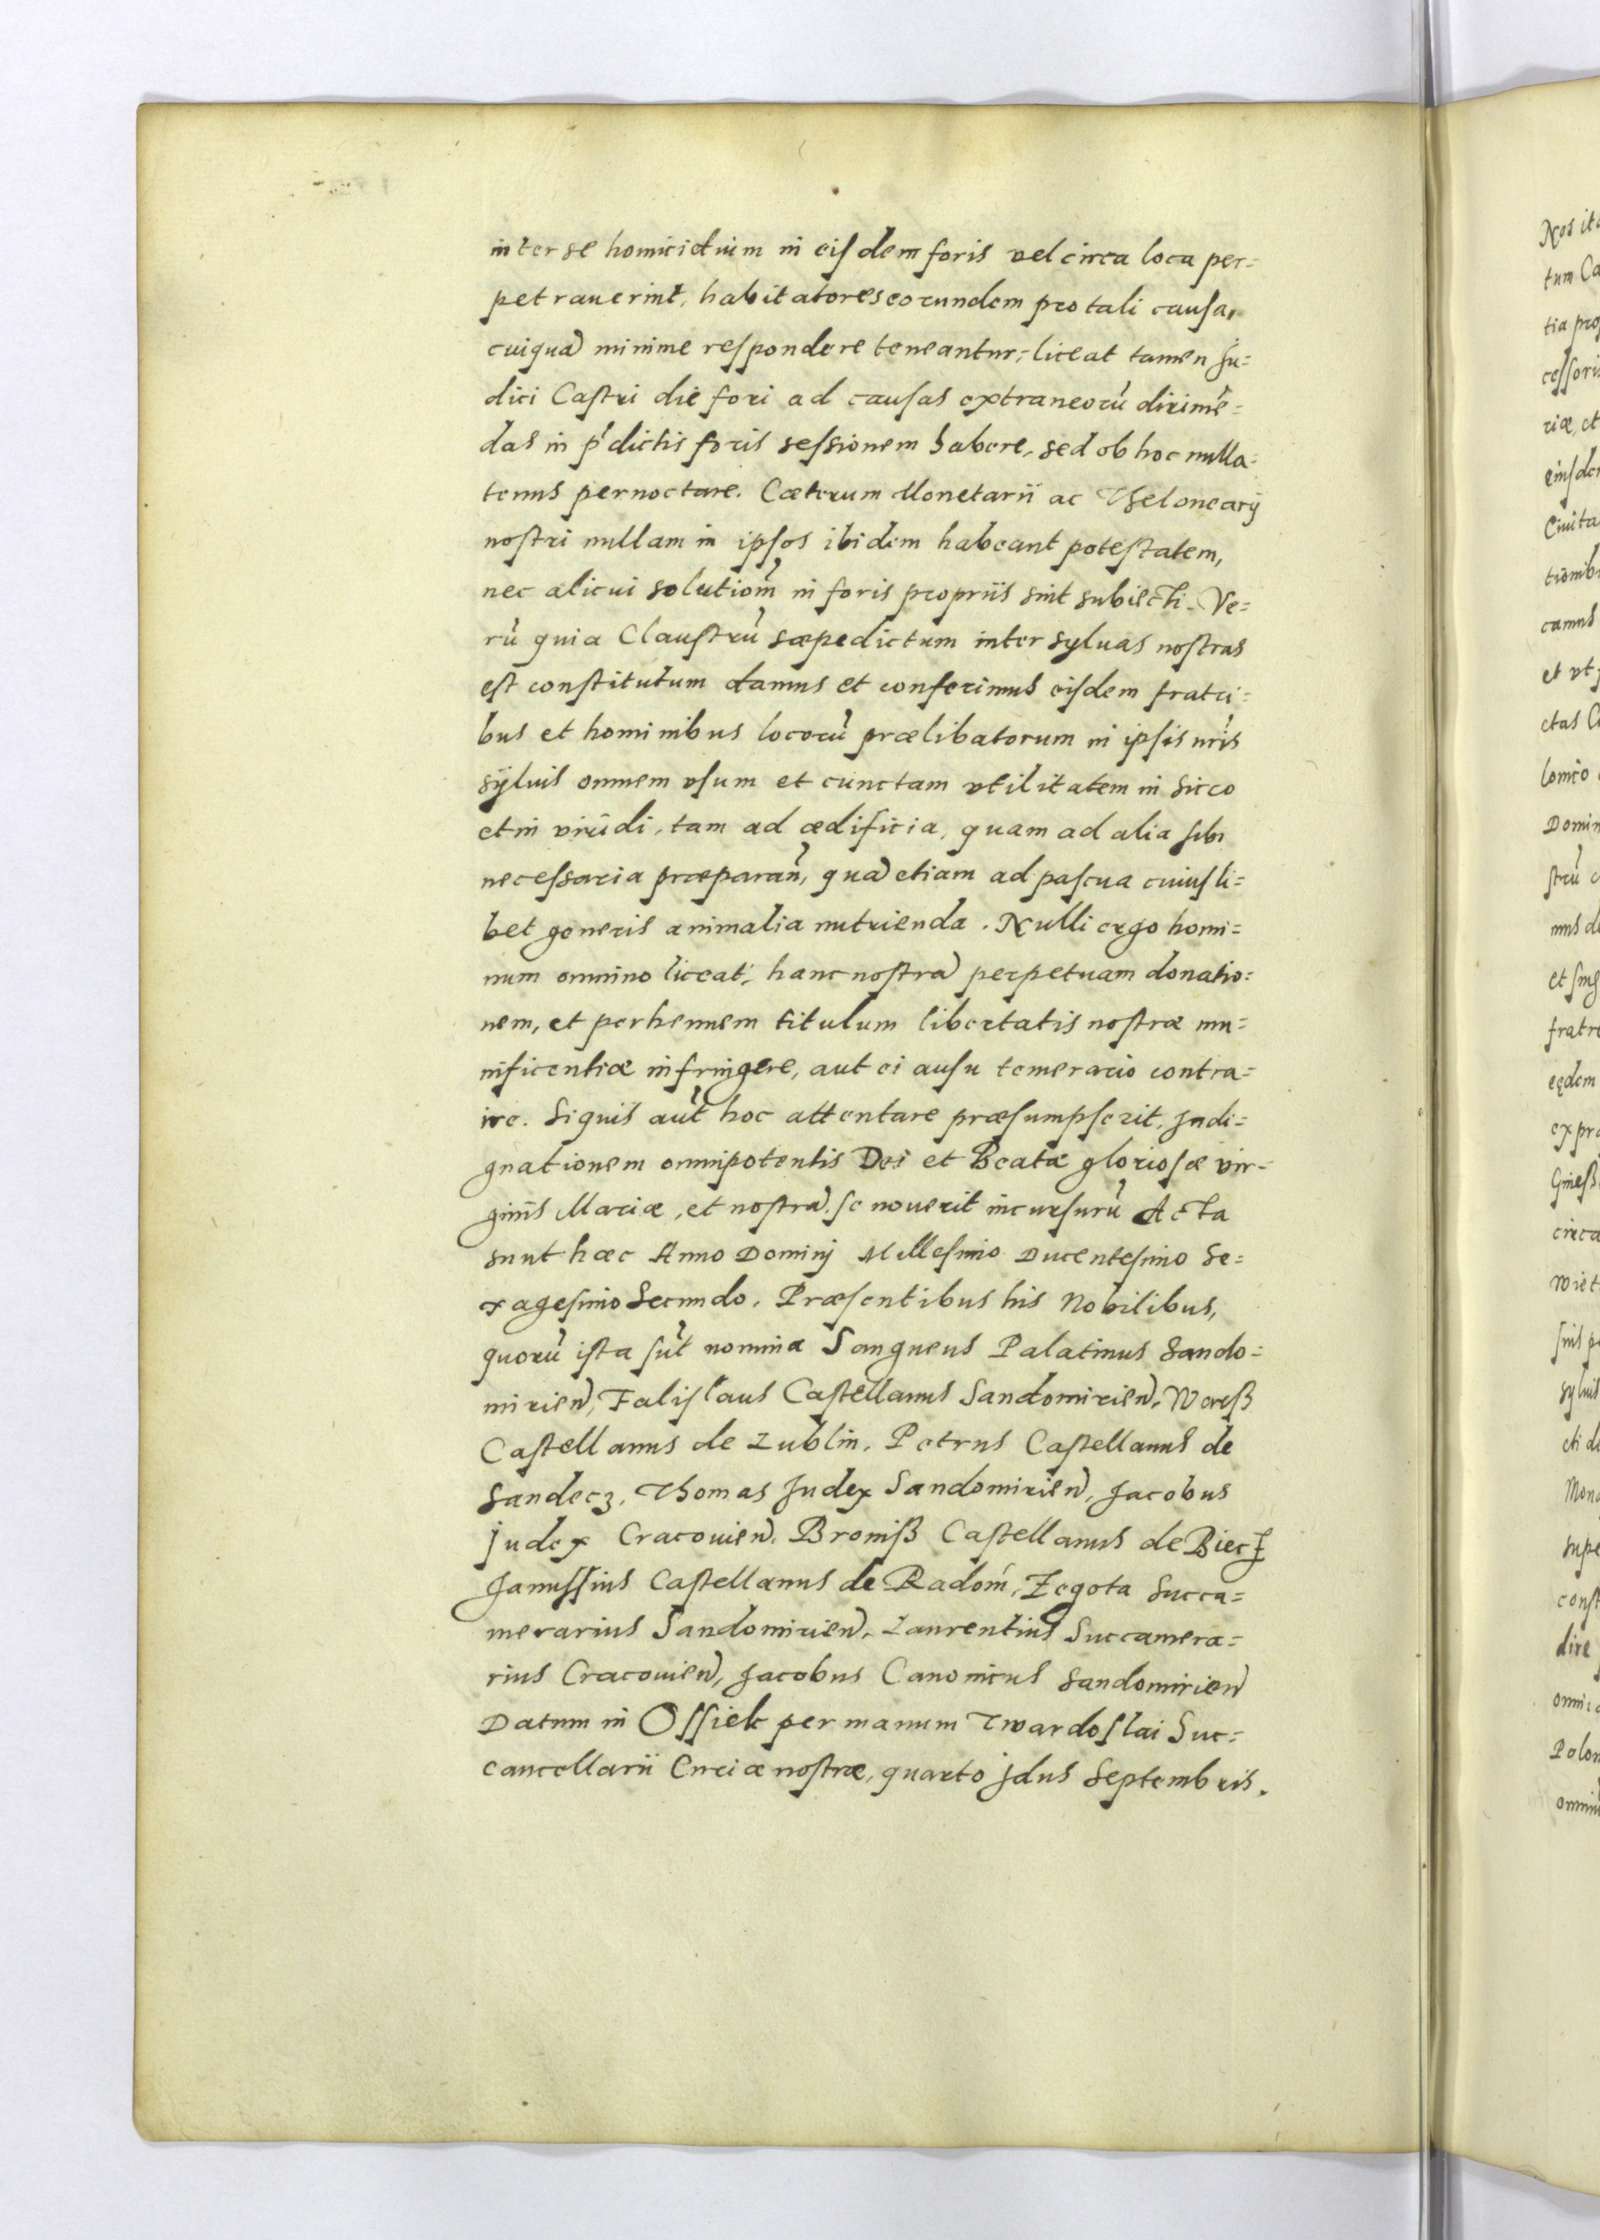 inter se homicidium in eisdem foris vel circa loca per=
petrauerint, habitatores eorundem pro tali causa,
cuiquā minime respondere teneantur, liceat tamen Ju=
dici Castri die fori ad causas extraneorū dirimē=
das in p̄dictis foris sessionem habere, sed ob hoc nulla=
tenus pernoctare. Cæterum Monetarii ac Thelonearij
nostri nullam in ipsos ibidem habeant potestatem,
nec alicui solutiom̄ in foris propriis sint subiecti. Ve=
rū quia Claustrū sæpedictum inter syluas nostras
est constitutum damus et conferimus eisdem fratri=
bus et hominibus locorū prælibatorum in ipsis nr̄is
sÿluis omnem vsum et cunctam vtilitatem in sicco
et in viridi, tam ad ædificia, quam ad alia sibi
necessaria præparan̄, quā etiam ad pascua cuiusli=
bet generis animalia nutrienda. Nulli ergo homi=
num omnino liceat, hanc nostrā perpetuam donatio=
nem, et perhennem titulum libertatis nostræ mu=
nificentiæ infringere, aut ei ausu temerario contra=
ire. Siquis aut̄ hoc attentare præsumpserit, Jndi=
gnationem omnipotentis Dei et Beatæ gloriosæ vir=
ginis Mariæ, et nostrā, se nouerit incursurū Acta
sunt hæc Anno Dominj Millesimo Ducentesimo Se=
xagesimo Secundo. Præsentibus his Nobilibus,
quorū ista sūt nomina Sangneus Palatinus Sando=
mirien̄, Falislaus Castellanus Sandomirien̄, Wereß
Castellanus de Lublin, Petrus Castellanus de
Sandecz, Thomas Judex Sandomirien̄, Jacobus
Judex Cracouien̄. Broniß Castellanus de Biecz
Janussius Castellanus de Radom̄, Zegota Succa=
merarius Sandomirien̄, Laurentius Succamera=
rius Cracouien̄, Jacobus Canonicus Sandomirien̄
Datum in Ossiek per manum Twardoslai Suc=
cancellarii Curiæ nostræ, quarto jdus Septembris.